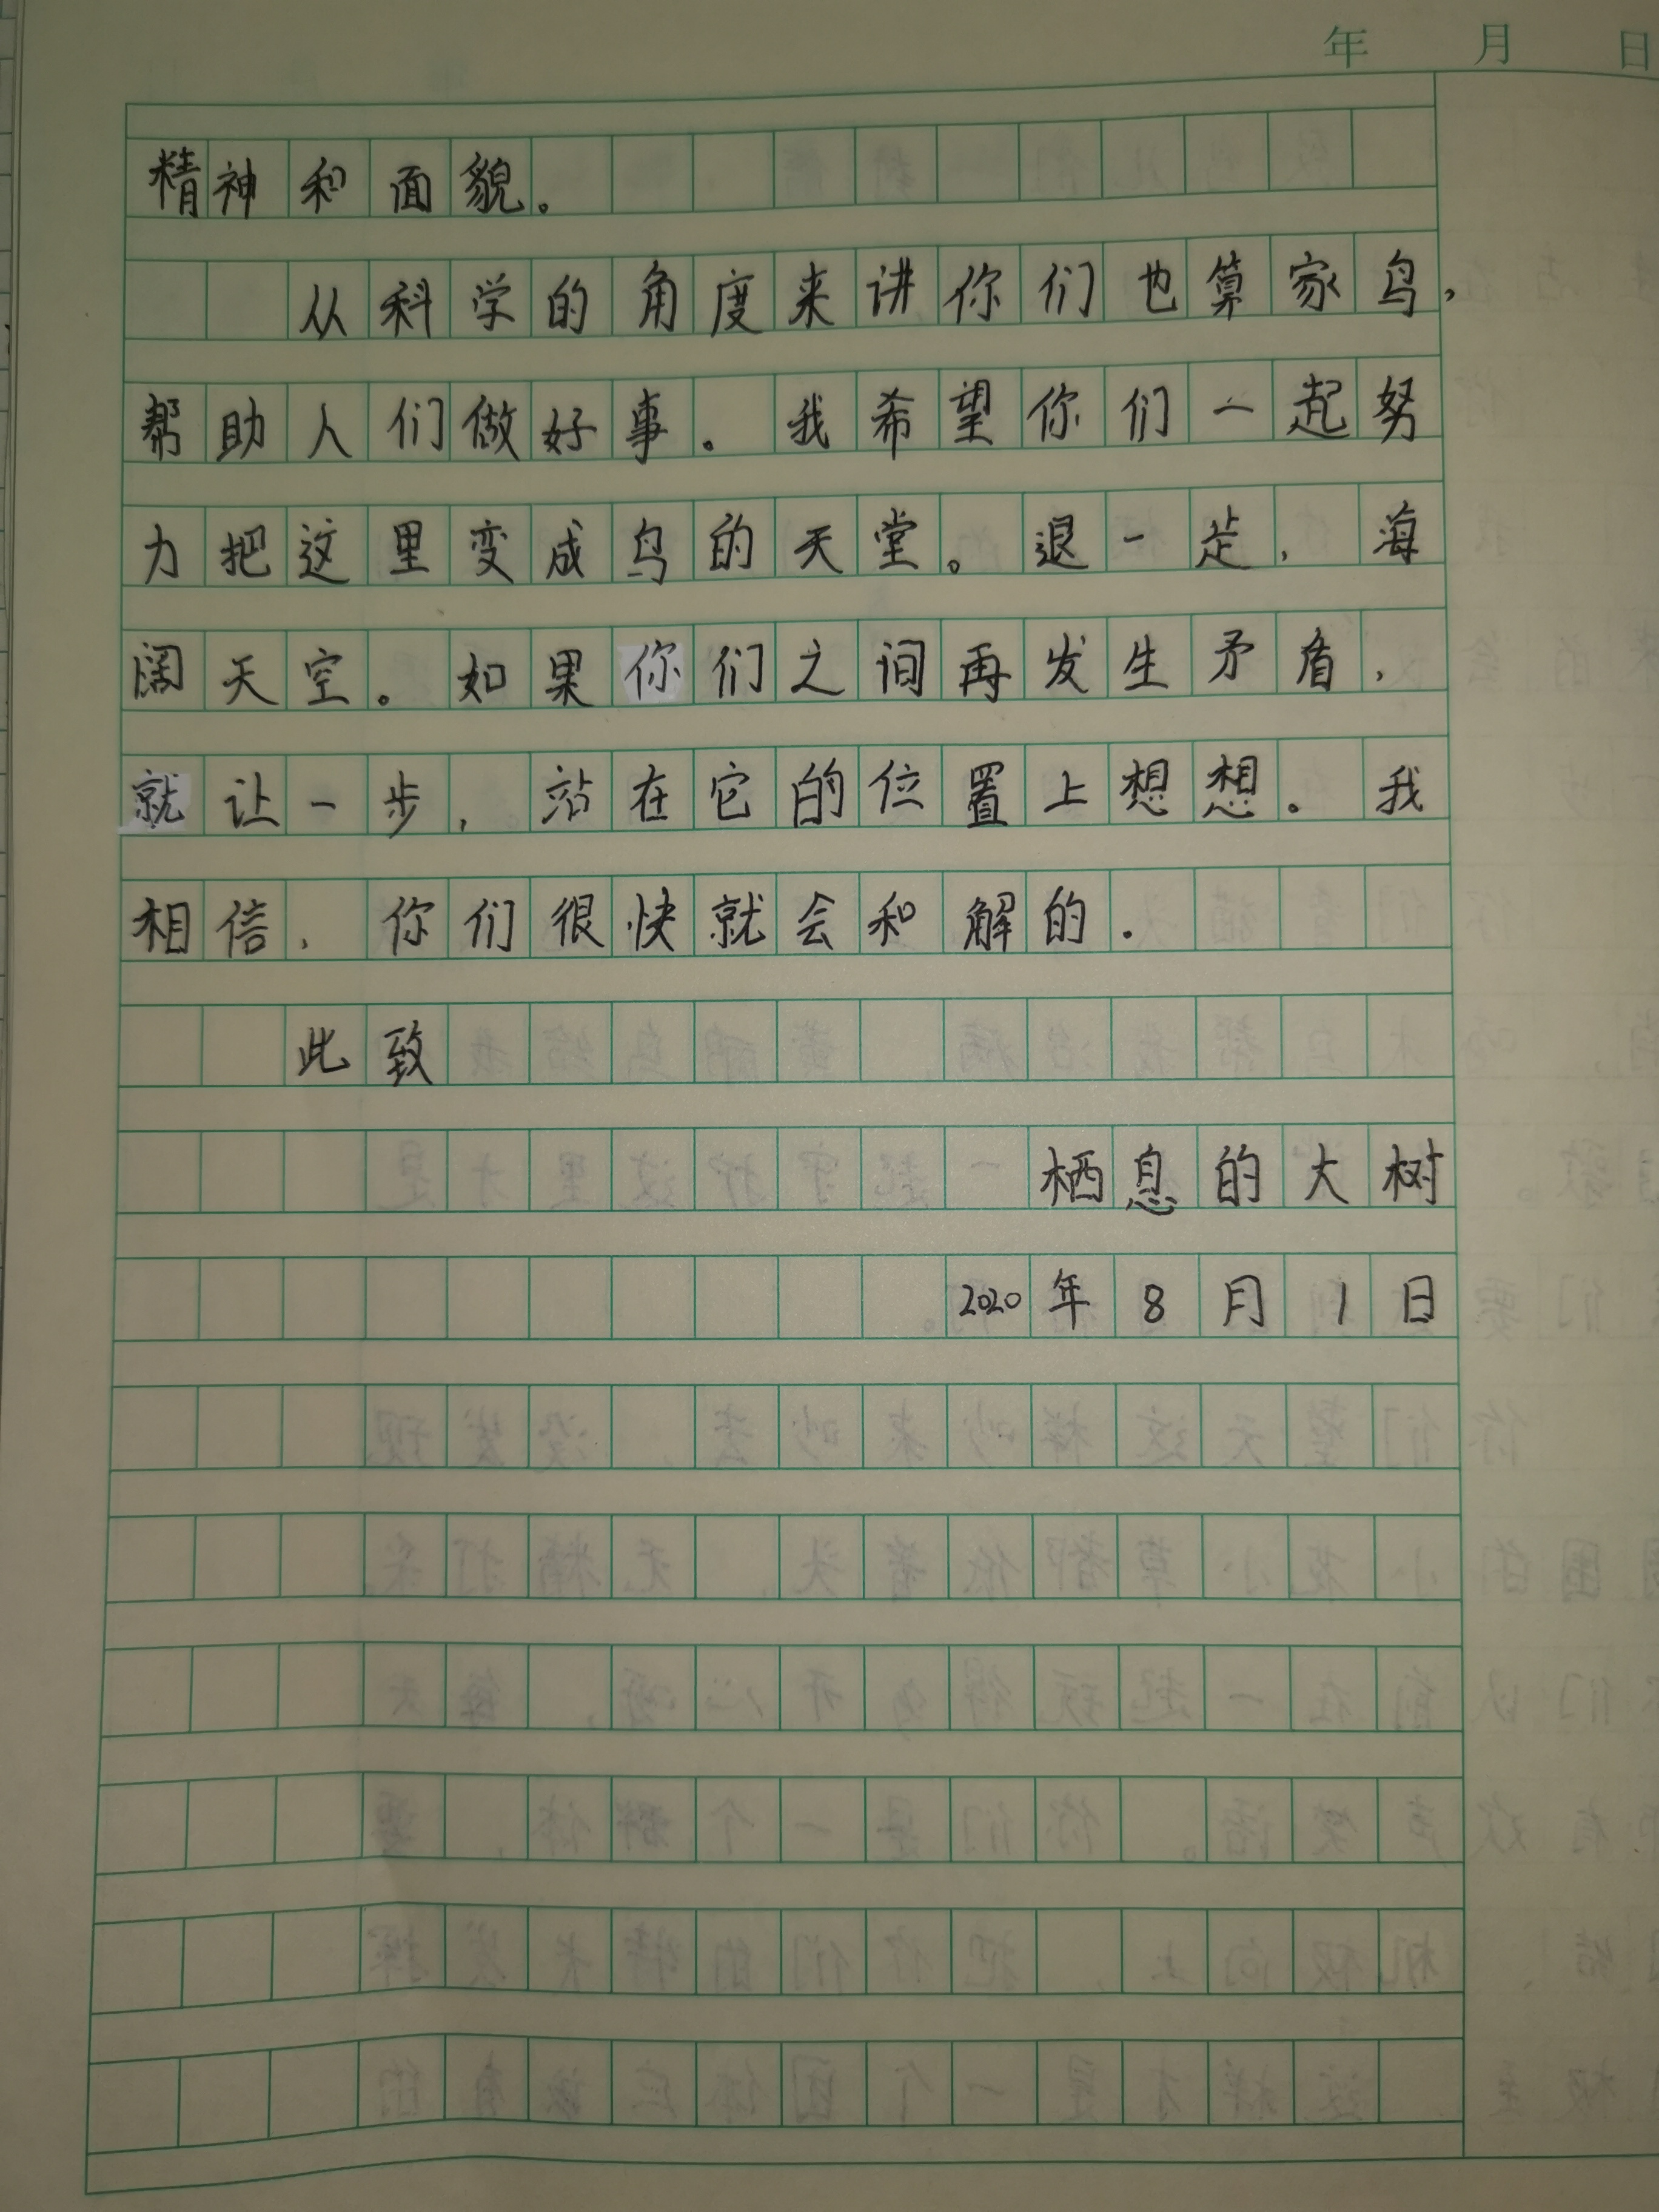 年 月 日
精神和面貌。
从科学的角度来讲你们也算家鸟，
帮助人们做好事。我希望你们一起努
力把这里变成鸟的天堂。退一步，海
阔天空。如果你们之间再发生矛盾，
就让一步，站在它的位置上想想。我
相信，你们很快就会和解的.
此致
栖息的大树
2020年8月1日